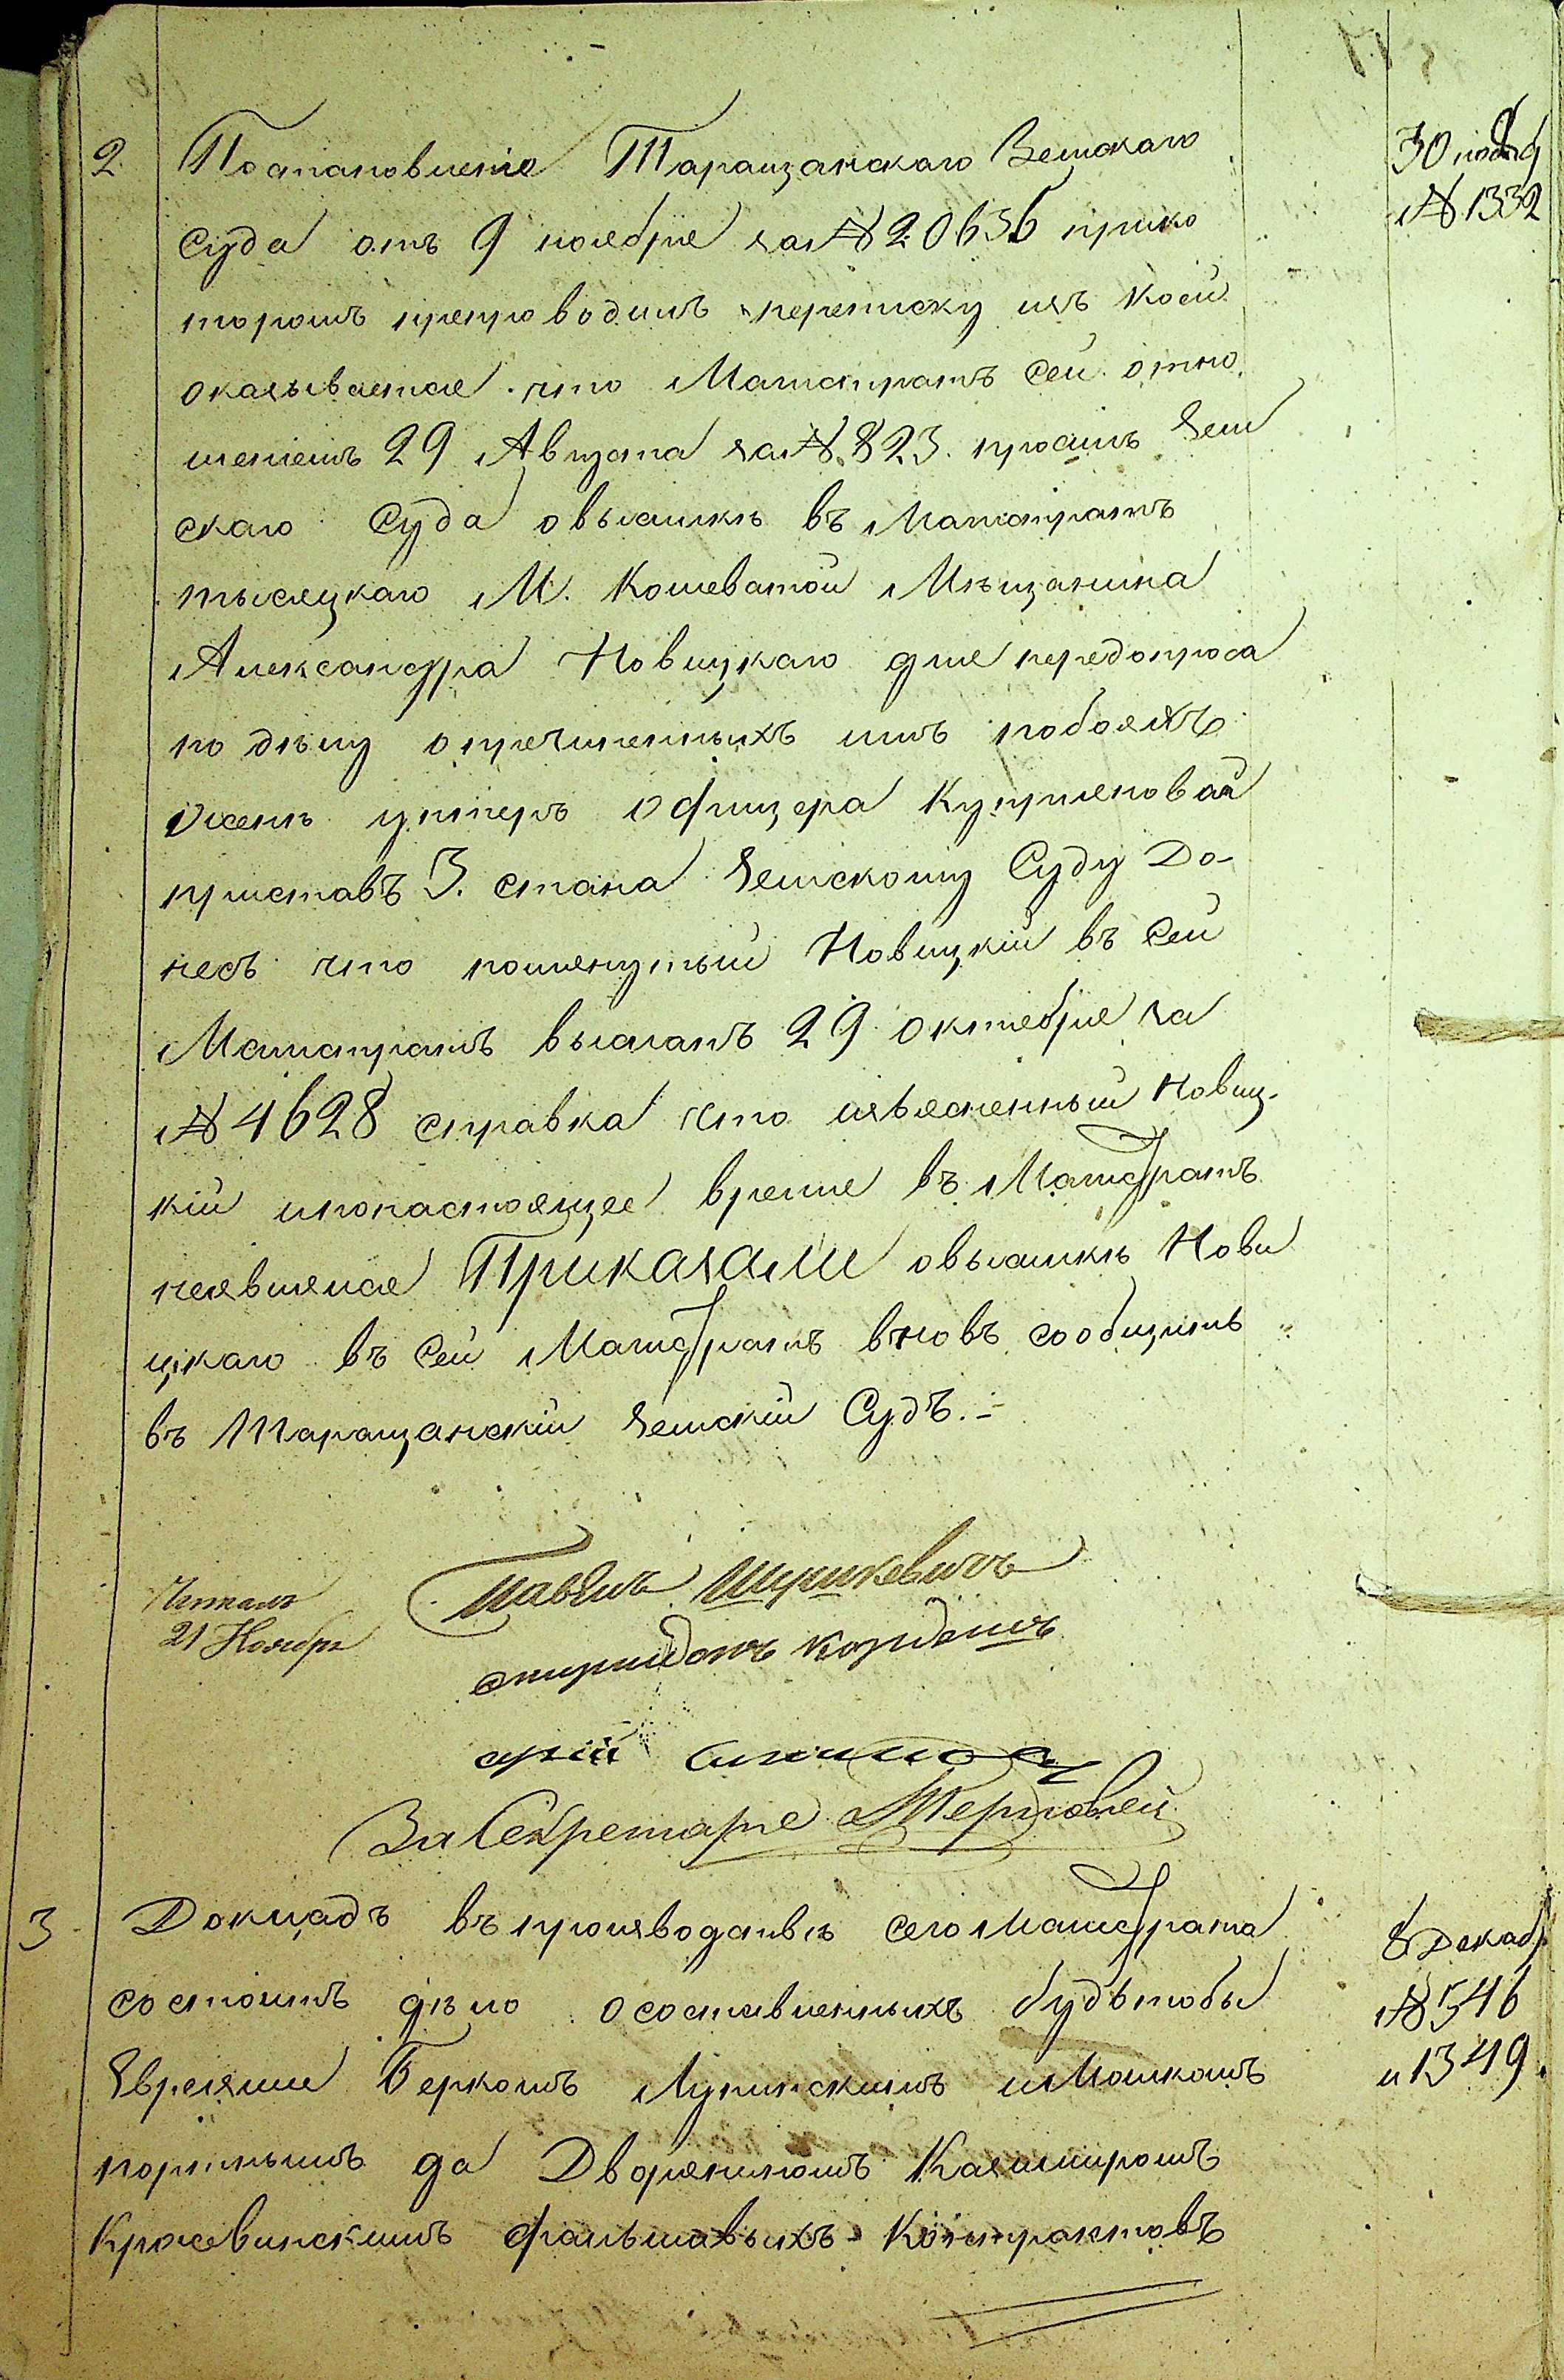 2 Постановленіе Таращанскаго Земскаго
30 ноября
№ 1332
Суда отъ 9 ноября за № 20636 прико
торомъ препроводилъ переписку изъ коей
оказывается что Магистратъ сей отно
шеніемъ 29 Августа за № 823. просилъ Зем
скаго Суда овысылкѣ въ Магистратъ
тысяцкаго М. Кошеватой Мѣщанина
Александра Новицкаго для передопроса
по дѣлу опречиненныхъ имъ побояхъ
женѣ унтеръ офицера Куприяновой
приставъ 3. стана Земскому Суду До-
несъ что помянутый Новицкій въ сей
Магистратъ высланъ 29 октября за
№ 4628 справка что изъясненный Новиц-
кій инонастоящее время въ Магистратъ
неявлялся Приказали овысылкѣ Нови
цкаго въ Сей Магистратъ вновь сообщить
въ Таращанскій Земскій Судъ.
Читалъ
21 Ноября
Павелъ
спиридонъ
За Секретаря
3 Докладъ въ производствѣ сего Магистрата
8 Декаб
состоитъ дѣло осоставленныхъ будьтобы
№ 546
Евреями Беркомъ Лупинскимъ иМошкомъ
и 1349.
портнымъ да Дворяниномъ Казимиромъ
фальшавыхъ контрактовъ